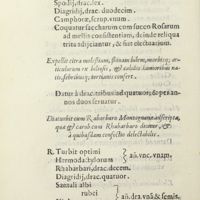 Spodij, drac. sex.
Diagridij, drac. duodecim.
Camphoræ, scrup. vnum.
Coquatur saccharum cum succo Rosarum
ad mellis consistentiam, deinde reliqua
trita adijciantur, & fiat electuarium.
Expellit citra molestiam, flauam bilem, morbosq; ar-
ticulorum ex bilosis, & calidis humoribus na-
tis, febribusq; tertianis confert.
Datur à drac. tribus ad quatuor; & per an-
nos duos seruatur.
cum Rhabarbaro Montagnanæ adscripta,
quæ & cum Rhabarbaro dicitur, &
à quibusdam confectio delectabilis.
R. Turbit optimi
Hermodactylorum
añ. vnc. vnam.
Rhabarbari, drac. decem.
Diagridij, drac. quatuor.
Santali albi
rubei
añ. dra. vnã & semis.